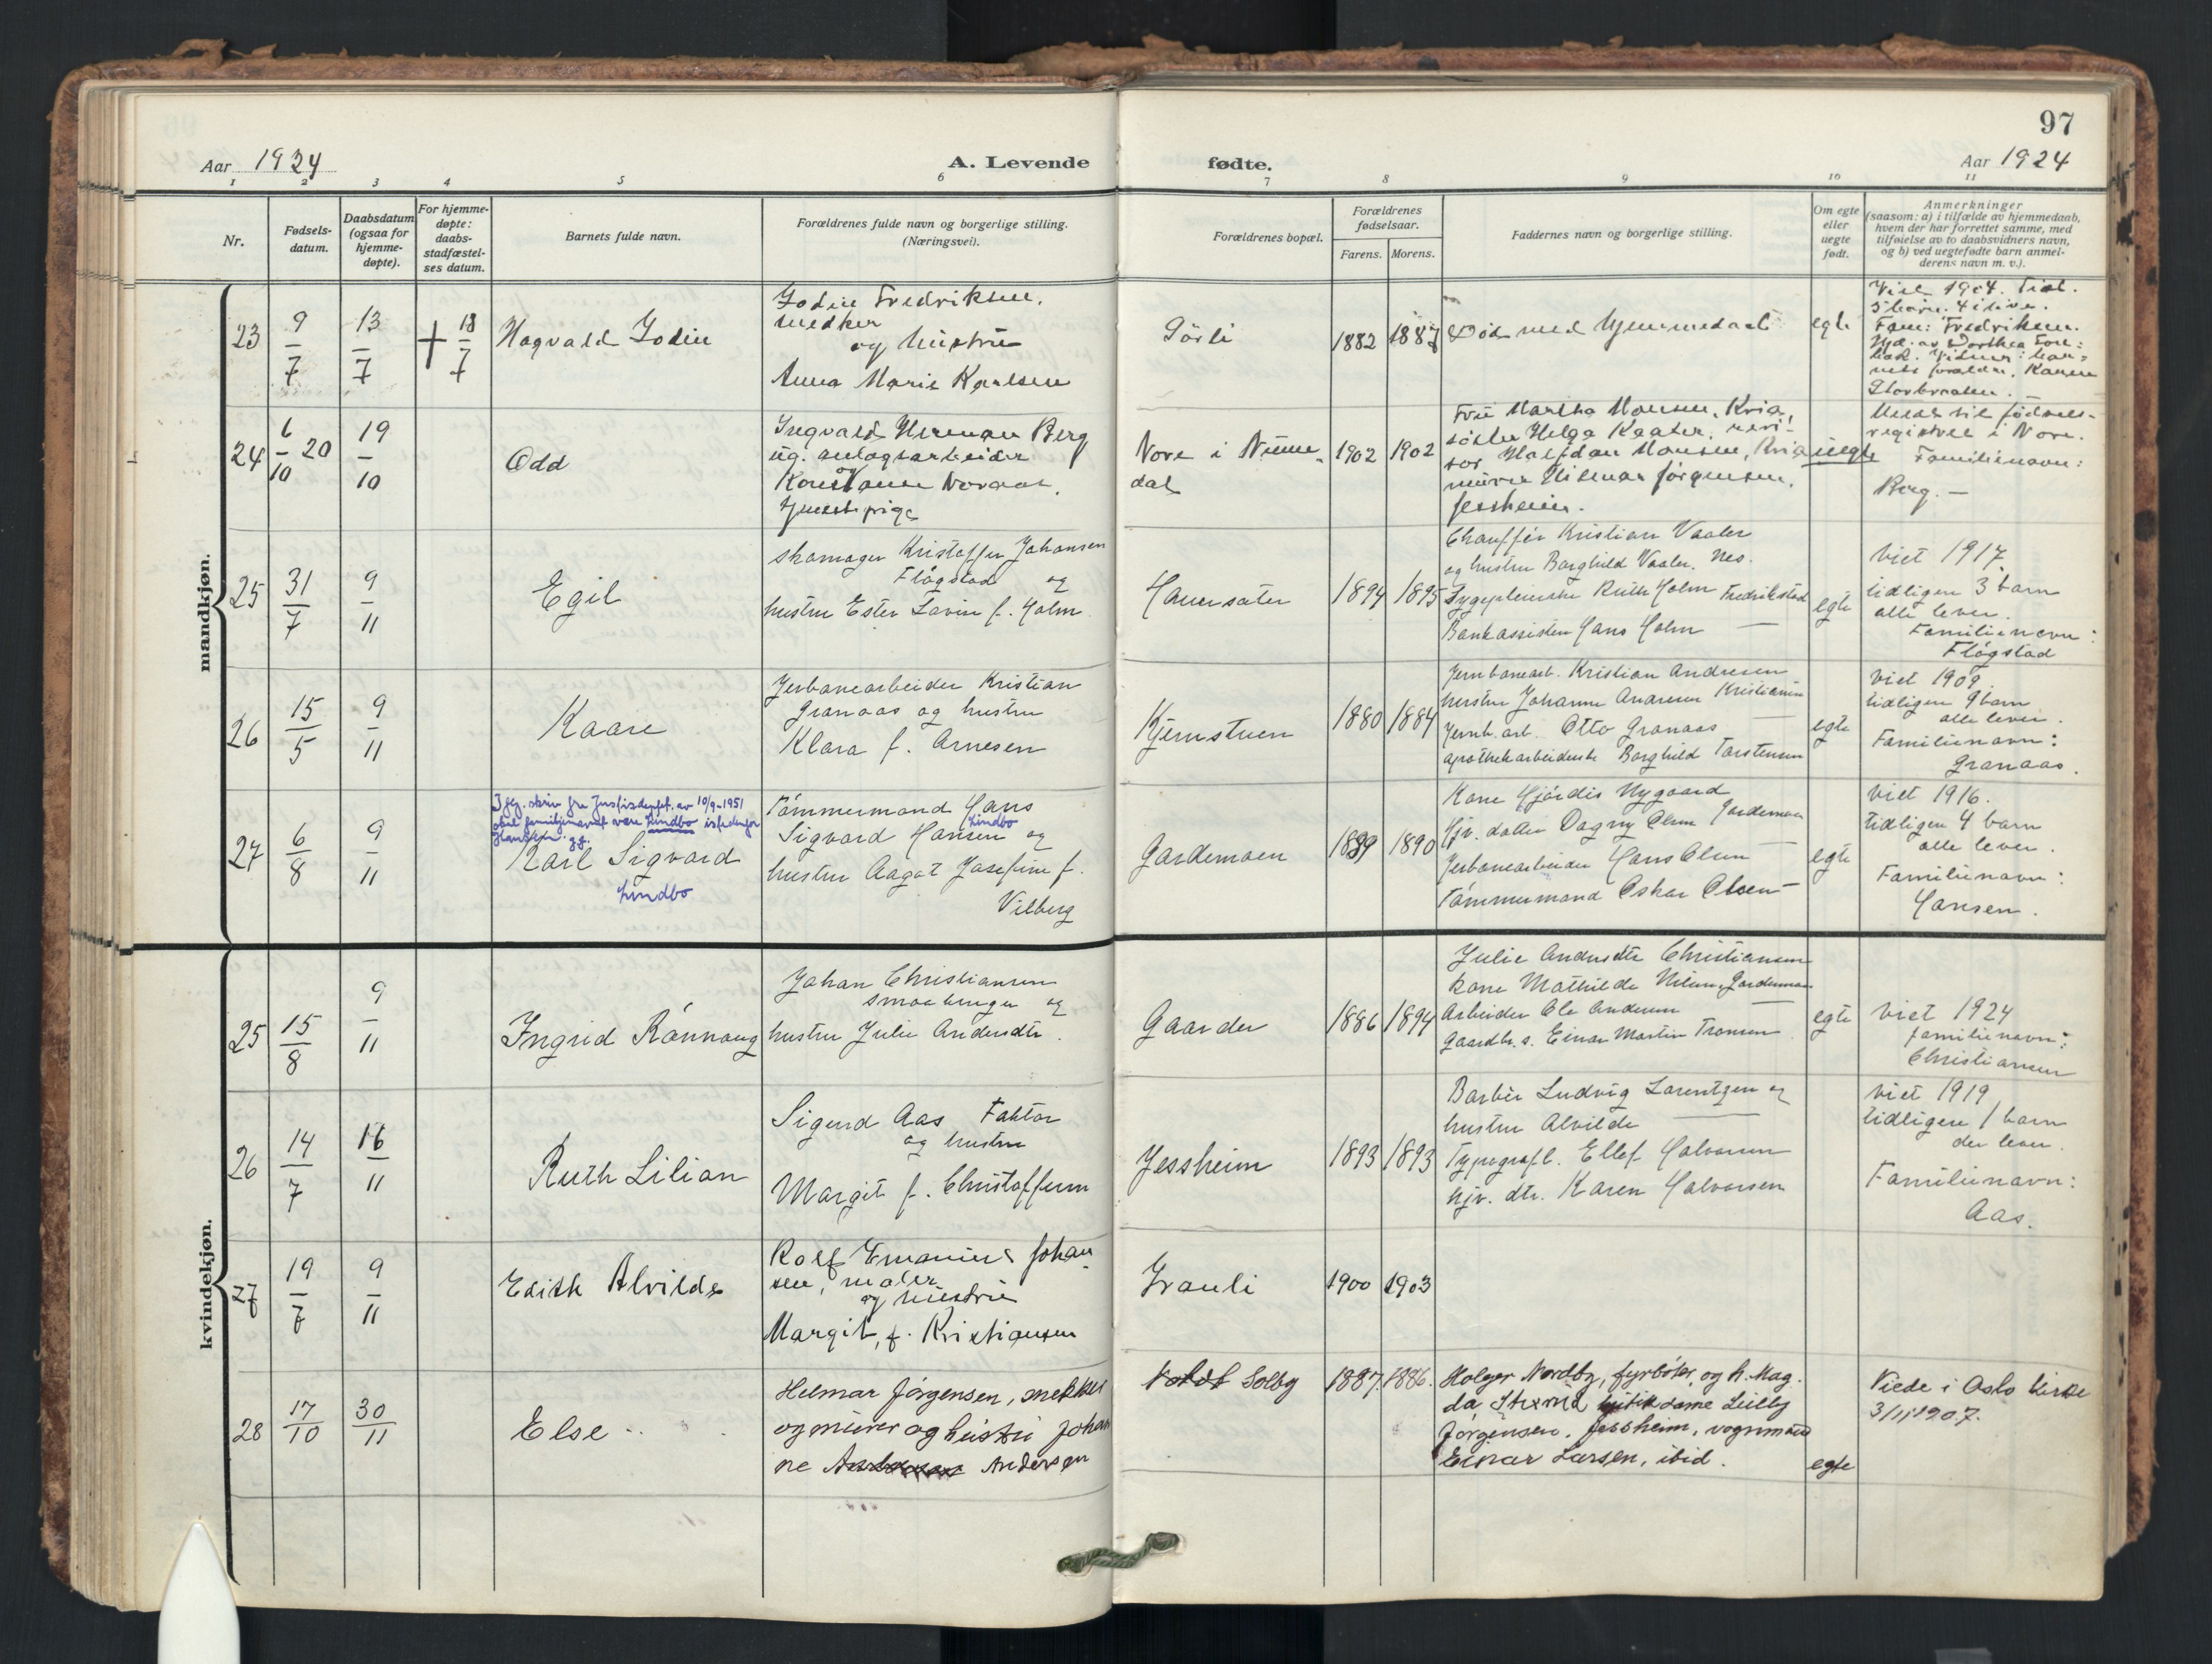 97
Aar 1924 A. Levende fødte. Aar 1924
1 2 3 4 5 6 7 8 9 10 11
Nr.
Fødsels-
datum.
Daabsdatum
(ogsaa for
hjemme-
døpte).
For hjemme-
døpte:
daabs-
stadfæstel-
ses datum.
Barnets fulde navn.
Forældrenes fulde navn og borgerlige stilling.
(Næringsvei).
Forældrenes bopæl.
Forældrenes
fødselsaar.
Farens. Morens.
Faddernes navn og borgerlige stilling.
Om egte
eller
uegte
født.
Anmerkninger
(saasom: a) i tilfælde av hjemmedaab,
hvem der har forrettet samme, med
tilføielse av to daabsvidners navn,
og b) ved uegtefødte barn anmel-
derens navn m. v.).
mandkjøn.
23
9/7
13/7
+ 18/7
Hagvald Jodin
Jodin Fredriksen,
snedker
og hustru
Anna Marie Karlsen
Dørli
1882 1887
Død med hjemmedaab
egte
Viet 1904. Tidl.
5 barn. 4 i live.
Fam: Fredriksen.
Hjd. av Dorthea
nets forældre, Karen
24
6/10 20
19/10
Odd
Ingvald Herman Berg
ug. anlægsarbeider
og
Konstanse Noraas,
tjenestepige
Nore i Nume-
dal
1902 1902
Fru Martha Monsen, Kria,
søster Helga Kaater, revi-
sor Halfdan Monsen, Kria
murer Hilmar Jørgensen,
Jessheim.
uegte
Meldt til fødsels-
registret i Nore.
Familienavn:
Berg. —
25
31/7
9/11
Egil
skomager Kristoffer Johansen
Fløgstad og
hustru Ester Lovise f. Holm
Hauersæter
1894 1895
Chauffør Kristian Vaaler
og hustru Borghild Vaaler. Nes.
Sygepleierske Ruth Holm Fredrikstad
Bankassistent Hans Holm —
egte
Viet 1917.
tidligere 3 barn
alle lever.
Familienavn:
Fløgstad
26
15/5
9/11
Kaare
Jerbanearbeider Kristian
Granaas og hustru
Klara f. Arnesen
Kjernstuen
1880 1884
Jernbanearb. Kristian Andresen
hustru Johanne Andresen Kristiania
Jernb. arb. Otto Granaas —
apothekarbeiderske Borghild Torstensen
egte
viet 1909.
tidligere 9 barn
alle lever.
Familienavn:
Granaas.
27
6/8
9/11
I flg. skriv fra Justisdepet. av 10/9-1951
skal familienavnet være Lindbo istedenfor
Karl Sigvard
Lindbo
Tømmermand Hans
Lindbo
Sigvard Hansen og
hustru Aagot Josefine f.
Vilberg
Gardemoen
1889 1890
Kone Hjørdis Nygaard
Hjv. datter Dagny Olsen Gardemoen
Jerbanearbeider Hans Olsen —
Tømmermand Oskar Olsen —
egte
Viet 1916.
tidligere 4 barn
alle lever.
Familienavn:
Hansen.
kvindekjøn.
25
15/8
9/11
Ingrid Rønnaug
Johan Christiansen
smaabruger og
hustru Julie Andersdtr.
Gaarder
1886 1894
Julie Andersdtr Christiansen
kone Mathilde Nilsen, Gardemoen
Arbeider Ole Andersen —
Gaardbr. s. Einar Martin Tronsen
egte
viet 1924
familienavn:
Christiansen
26
14/7
16/11
Ruth Lilian
Sigurd Aas Faktor
og hustru
Margit f. Christoffersen
Jessheim
1893 1893
Barber Ludvig Lorentzen og
hustru Alvilde —
Typograf l. Ellef Halvorsen
hjv. dtr. Karen Halvorsen
viet 1919
tidligere 1 barn
der lever.
Familienavn:
Aas.
27
19/7
9/11
Edith Alvilde
Rolf Emanuel Johan-
sen, maler
og hustru
Margit, f. Kristiansen
Grauli
1900 1903
28
17/10
30/11
Else
Hilmar Jørgensen, snekker
og murer og hustru Johan
ne Andersen
Solby
1887. 1886.
Holger Nordby, fyrbøter, og h. Mag-
da butikdame Lilly
Jørgensen, Jessheim, vognmand
Einar Larsen, ibid.
egte
Viede i Oslo kirke
3/11 1907.